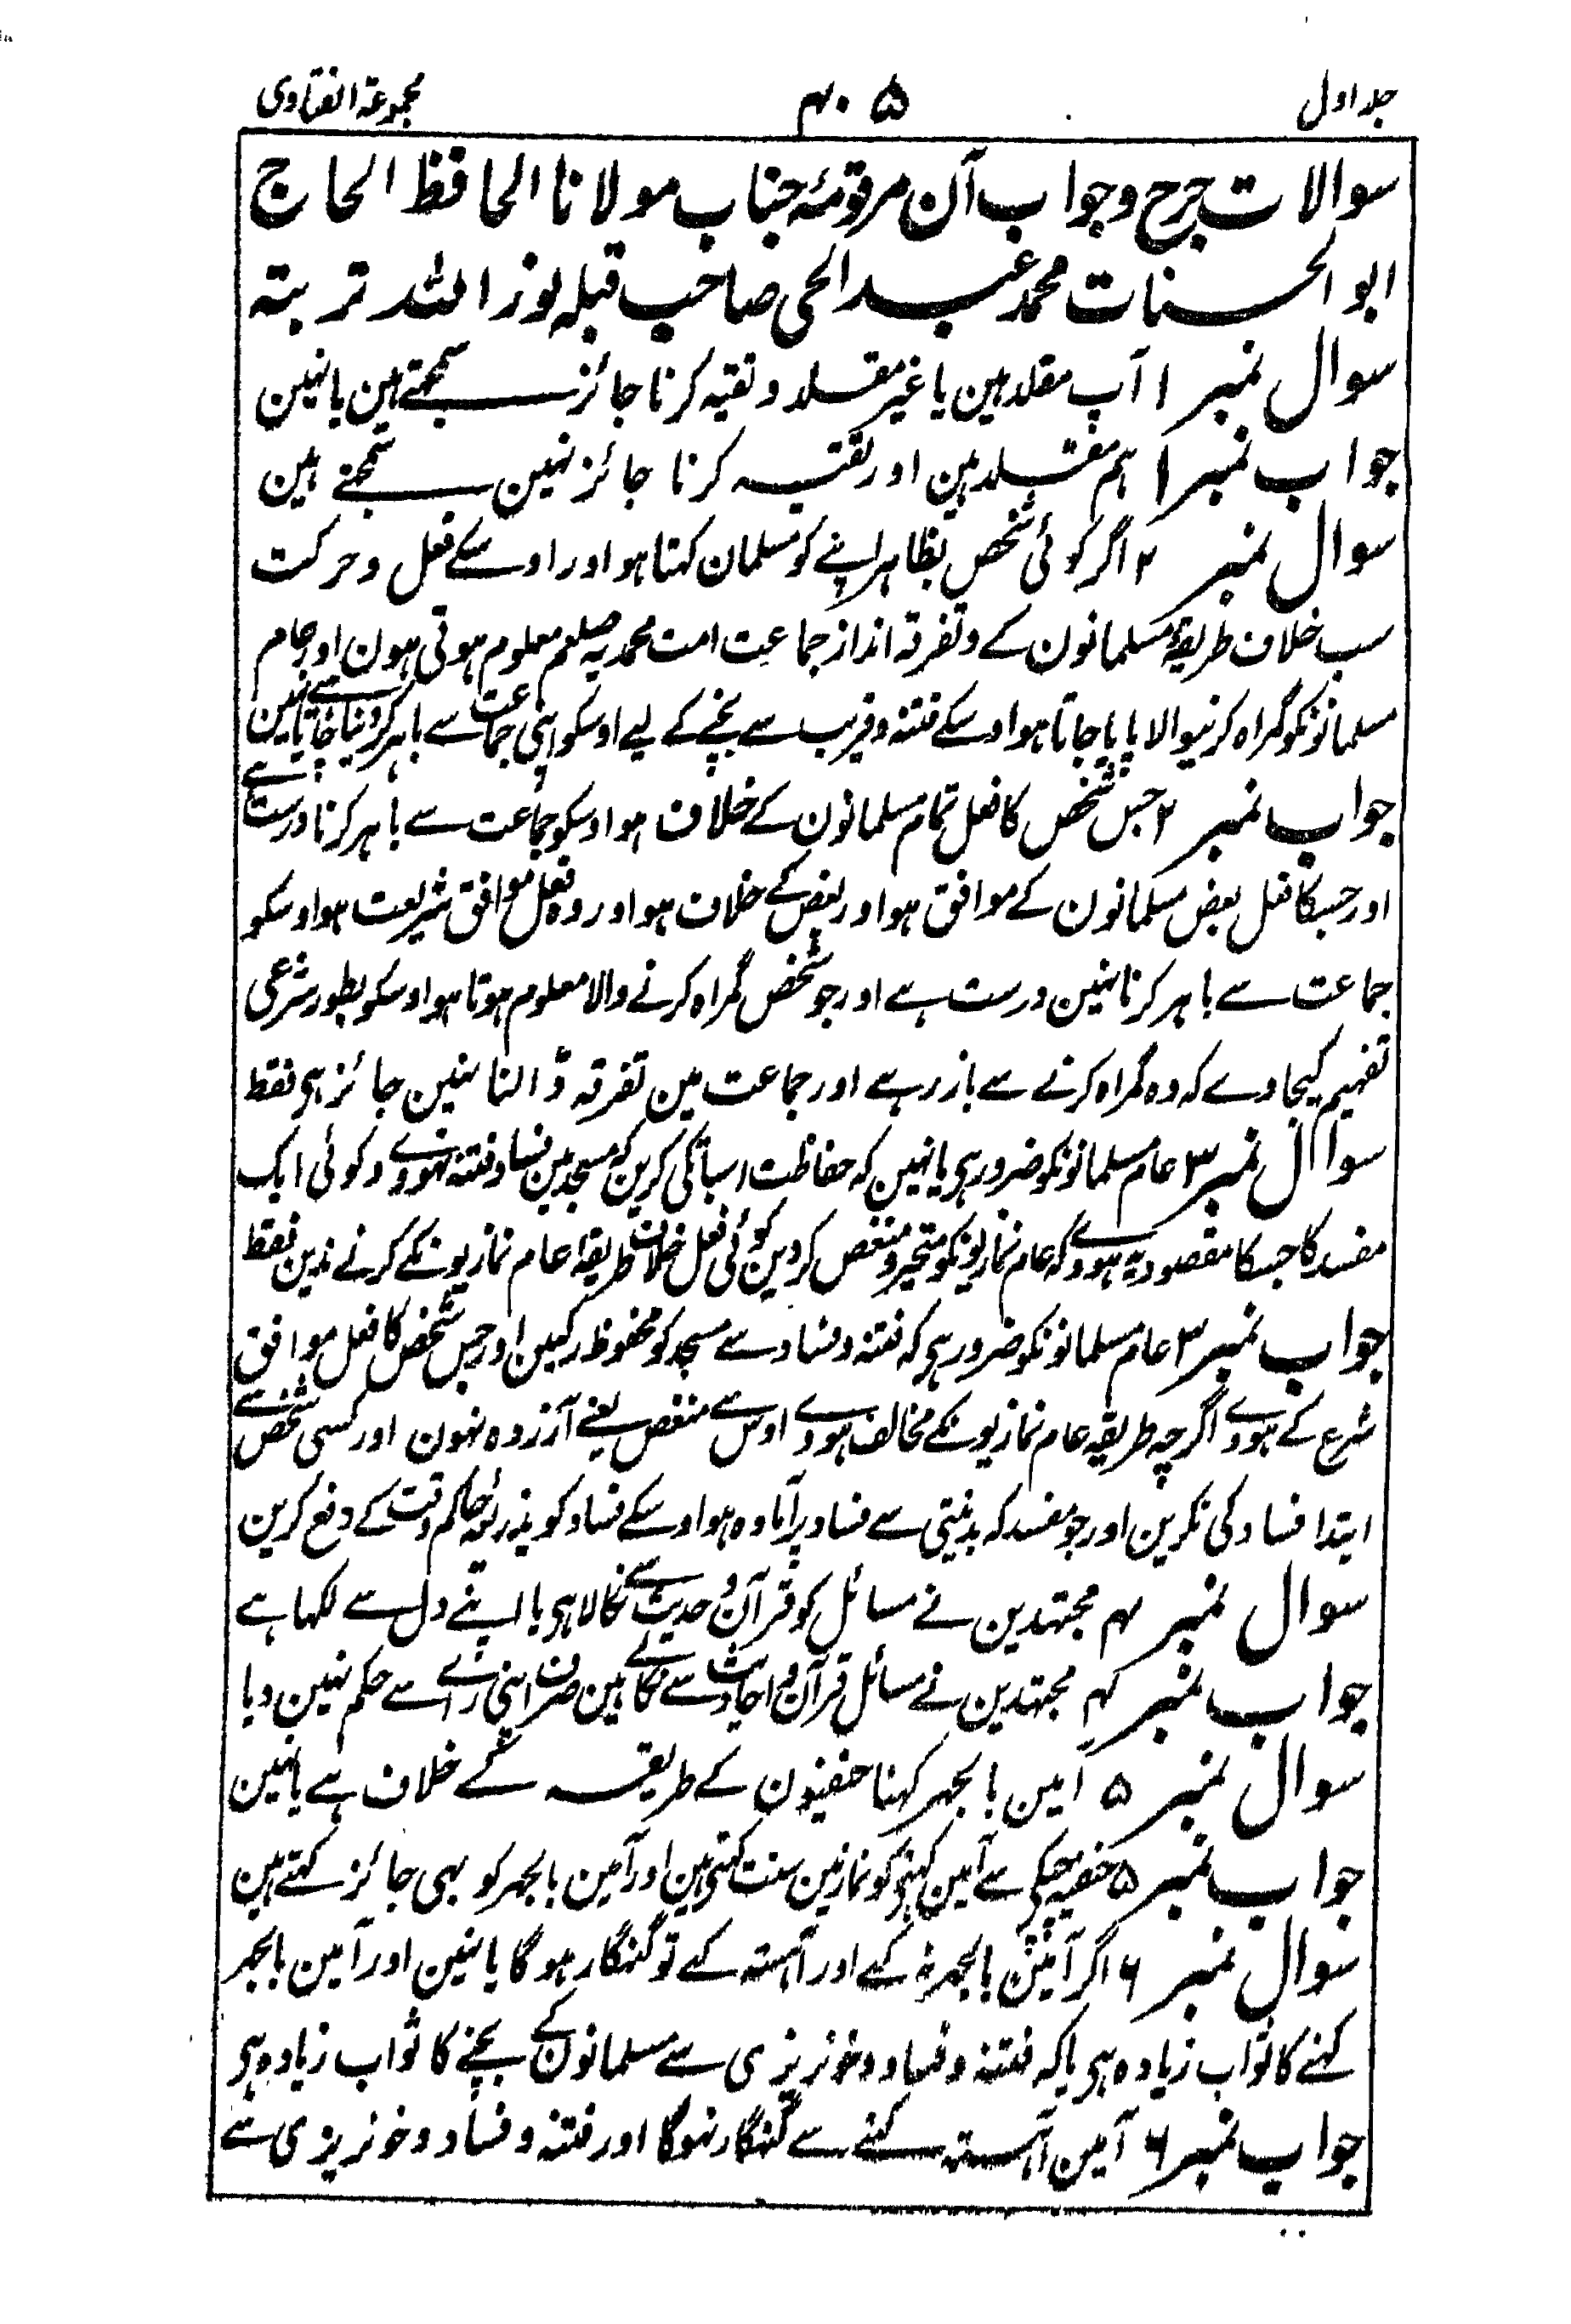 جلد اول ۴۰۵ مجموعۃ الفتاوی
سوالات جرح وجواب آن مرقومۂ جناب مولانا الحافظ الحاج
ابو الحسنات محمد عبد الحی صاحب قبلہ نور اللہ تربتہ
سوال نمبر ۱ آپ مقلد ہین یا غیر مقلد و تقیہ کرنا جائز سمجھتے ہین یا نہین
جواب نمبر ۱ ہم مقلد ہین اور تقیہ کرنا جائز نہین سمجھتے ہین
سوال نمبر ۲ اگر کوئی شخص بظاہر اپنے کو مسلمان کہتا ہو اور اوسکے فعل و حرکت
سب خلاف طریقۂ مسلمانون کے و تفرقہ انداز جماعت امت محمدیہ صلعم معلوم ہوتی ہون اور عام
مسلمانونکو گمراہ کرنیوالا پایا جاتا ہو اوسکے فتنہ و فریب سے بچنے کے لیے اوسکو اپنی جماعت سے باہر کر دینا چاہیے یا نہین
جواب نمبر ۲ جس شخص کا فعل تمام مسلمانون کے خلاف ہو اوسکو جماعت سے باہر کرنا درست ہے
اور جسکا فعل بعض مسلمانون کے موافق ہو اور بعض کے خلاف ہو اور وہ فعل موافق شریعت ہو اوسکو
جماعت سے باہر کرنا نہین درست ہے اور جو شخص گمراہ کرنے والا معلوم ہوتا ہو اوسکو بطور شرعی
تفہیم کیجاوے کہ وہ گمراہ کرنے سے باز رہے اور جماعت مین تفرقہ ڈالنا نہین جائز ہی فقط
سوال نمبر ۳ عام مسلمانونکو ضرور ہی یا نہین کہ حفاظت اسباتکی کرین کہ مسجد مین فساد فتنہ نہووے و کوئی ایک
مفسد کا جسکا مقصود یہ ہووے کہ عام نمازیونکو متحیر و منغص کر دین کوئی فعل خلاف طریقہ عام نمازیونکے کرنے ندین فقط
جواب نمبر ۳ عام مسلمانونکو ضرور ہی کہ فتنہ و فساد سے مسجد کو محفوظ رکہین اور جس شخص کا فعل موافق
شرع کے ہووے اگرچہ طریقہ عام نمازیونکے مخالف ہووے اوس سے منغص یعنے آزردہ نہون اور کسی شخص سے
ابتدا فساد کی نکرین اور جو مفسد کہ بدنیتی سے فساد پر آمادہ ہو اوسکے فساد کو بذریعۂ حاکم وقت کے دفع کرین
سوال نمبر ۴ مجتہدین نے مسائل کو قرآن و حدیث سے نکالا ہی یا اپنے دل سے لکہا ہے
جواب نمبر ۴ مجتہدین نے مسائل قرآن و احادیث سے نکالے ہین صرف اپنی رائے سے حکم نہین دیا
سوال نمبر ۵ آمین بالجہر کہنا حنفیون کے طریقہ کے خلاف ہے یا نہین
جواب نمبر ۵ حنفیہ چپکے سے آمین کہنے کو نماز مین سنت کہتے ہین اور آمین بالجہر کو بہی جائز کہتے ہین
سوال نمبر ۶ اگر آمین بالجہر نہ کہے اور آہستہ کہے تو گنہگار ہوگا یا نہین اور آمین بالجہر
کہنے کا ثواب زیادہ ہی یا کہ فتنہ و فساد و خونریزی سے مسلمانون کے بچنے کا ثواب زیادہ ہی
جواب نمبر ۶ آمین آہستہ کہنے سے گنہگار نہوگا اور فتنہ و فساد و خونریزی سے